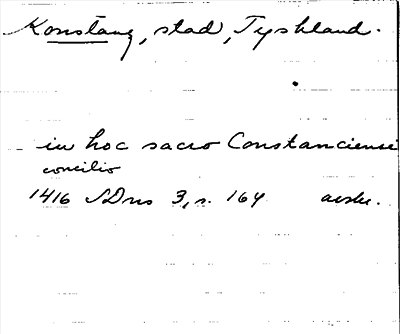 Konstanz, stad, Tyskland.
in hoc sacro Constanciensi
concilio
1416 SDns 3, s. 164 avskr.